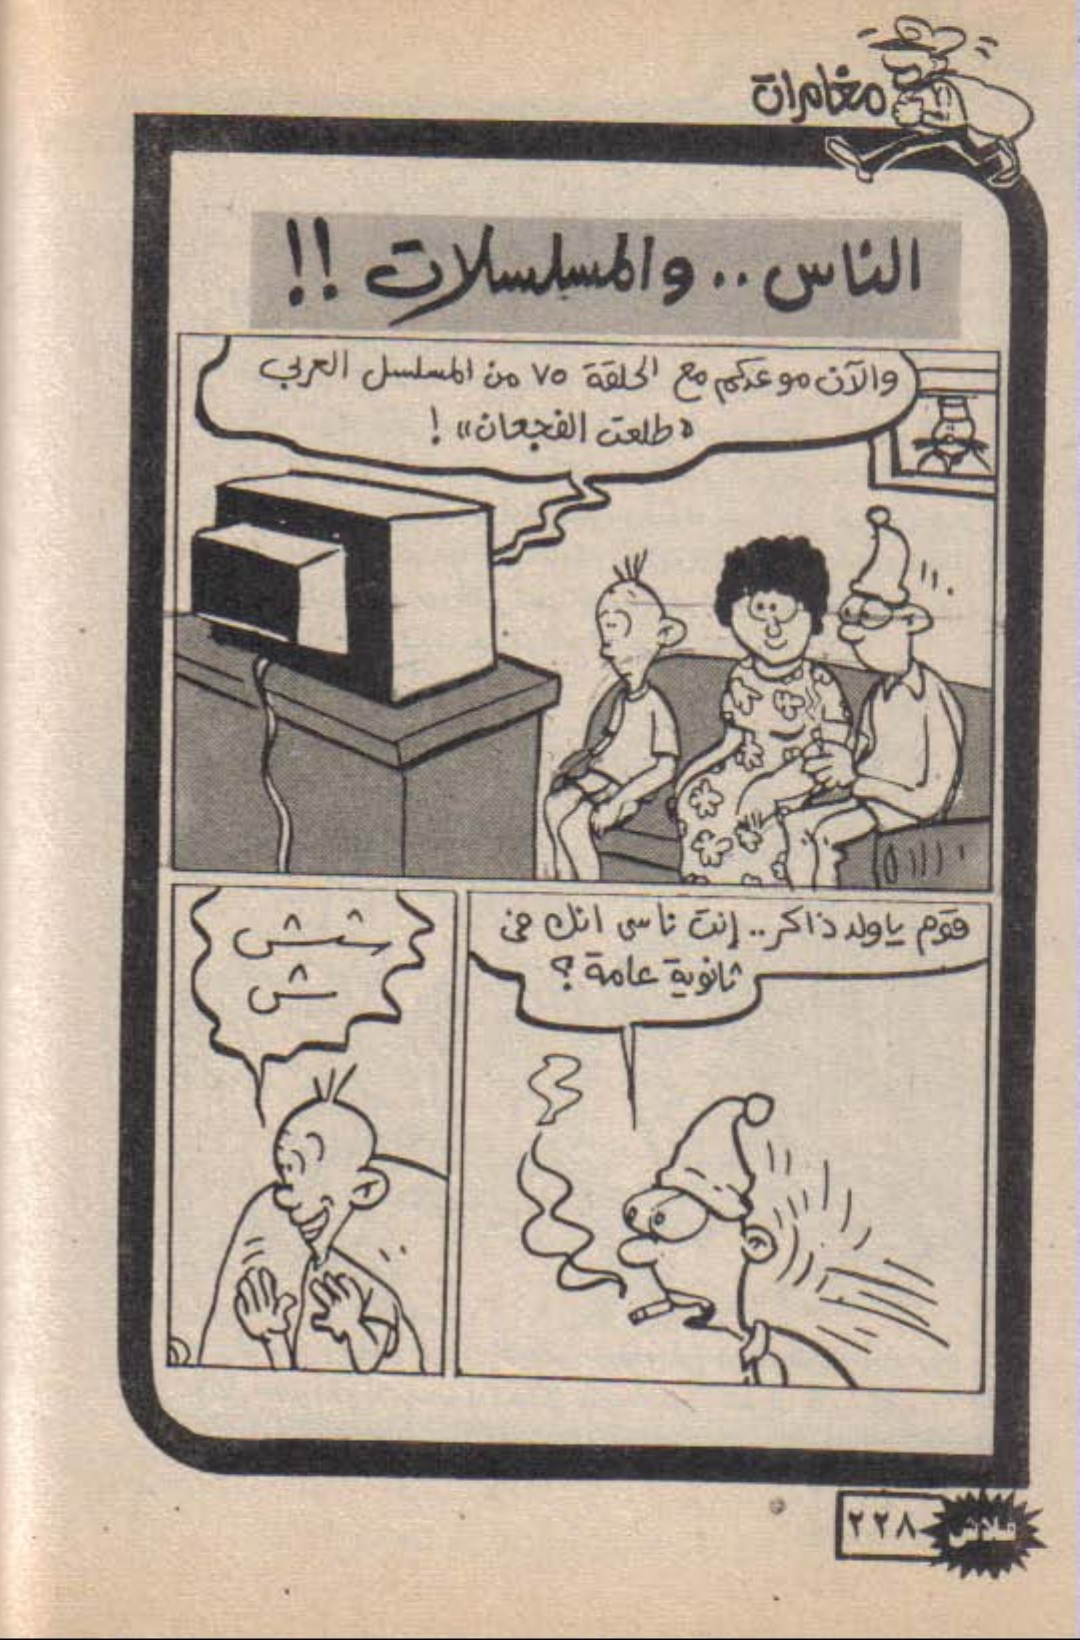 مغامرات
الناس .. والمسلسلات !!
والآن موعدكم مع الحلقة ٧٥ من المسلسل العربي
«طلعت الفجعان» !
قوم ياولد ذاكر .. إنت ناسى انك فى
ثانوية عامة ؟
شش
ش
فلاش ٢٢٨